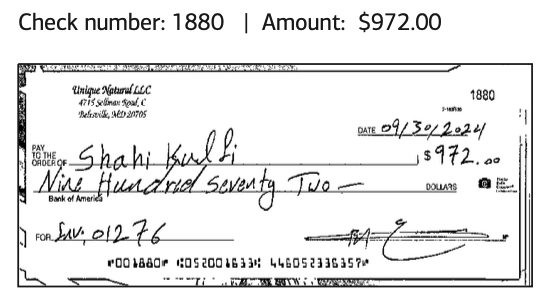 Check number: 1880 | Amount: $972.00
Unique Natural LLC
4715 Sellman Road, C
Beltsville, MD 20705
1880
DATE 09/30/2024
PAY TO THE ORDER OF Shahi Kulfi $972.00
Nine Hundred Seventy Two — DOLLARS
Bank of America
FOR Inv. 01276
⑈001880⑈ ⑆052001633⑆ 446052336357⑈